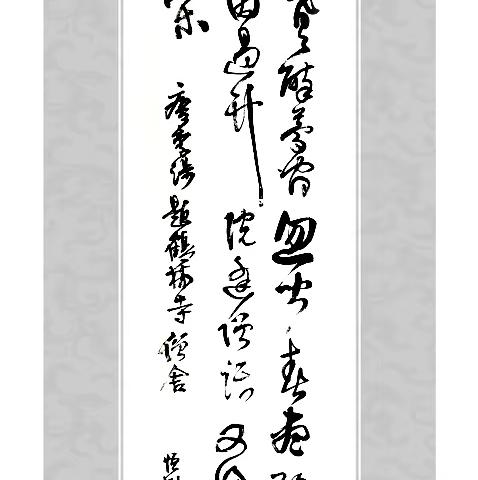 醉夢间忽闻春尽
因過竹院逢僧話又
唐李涉题鶴林寺僧舍